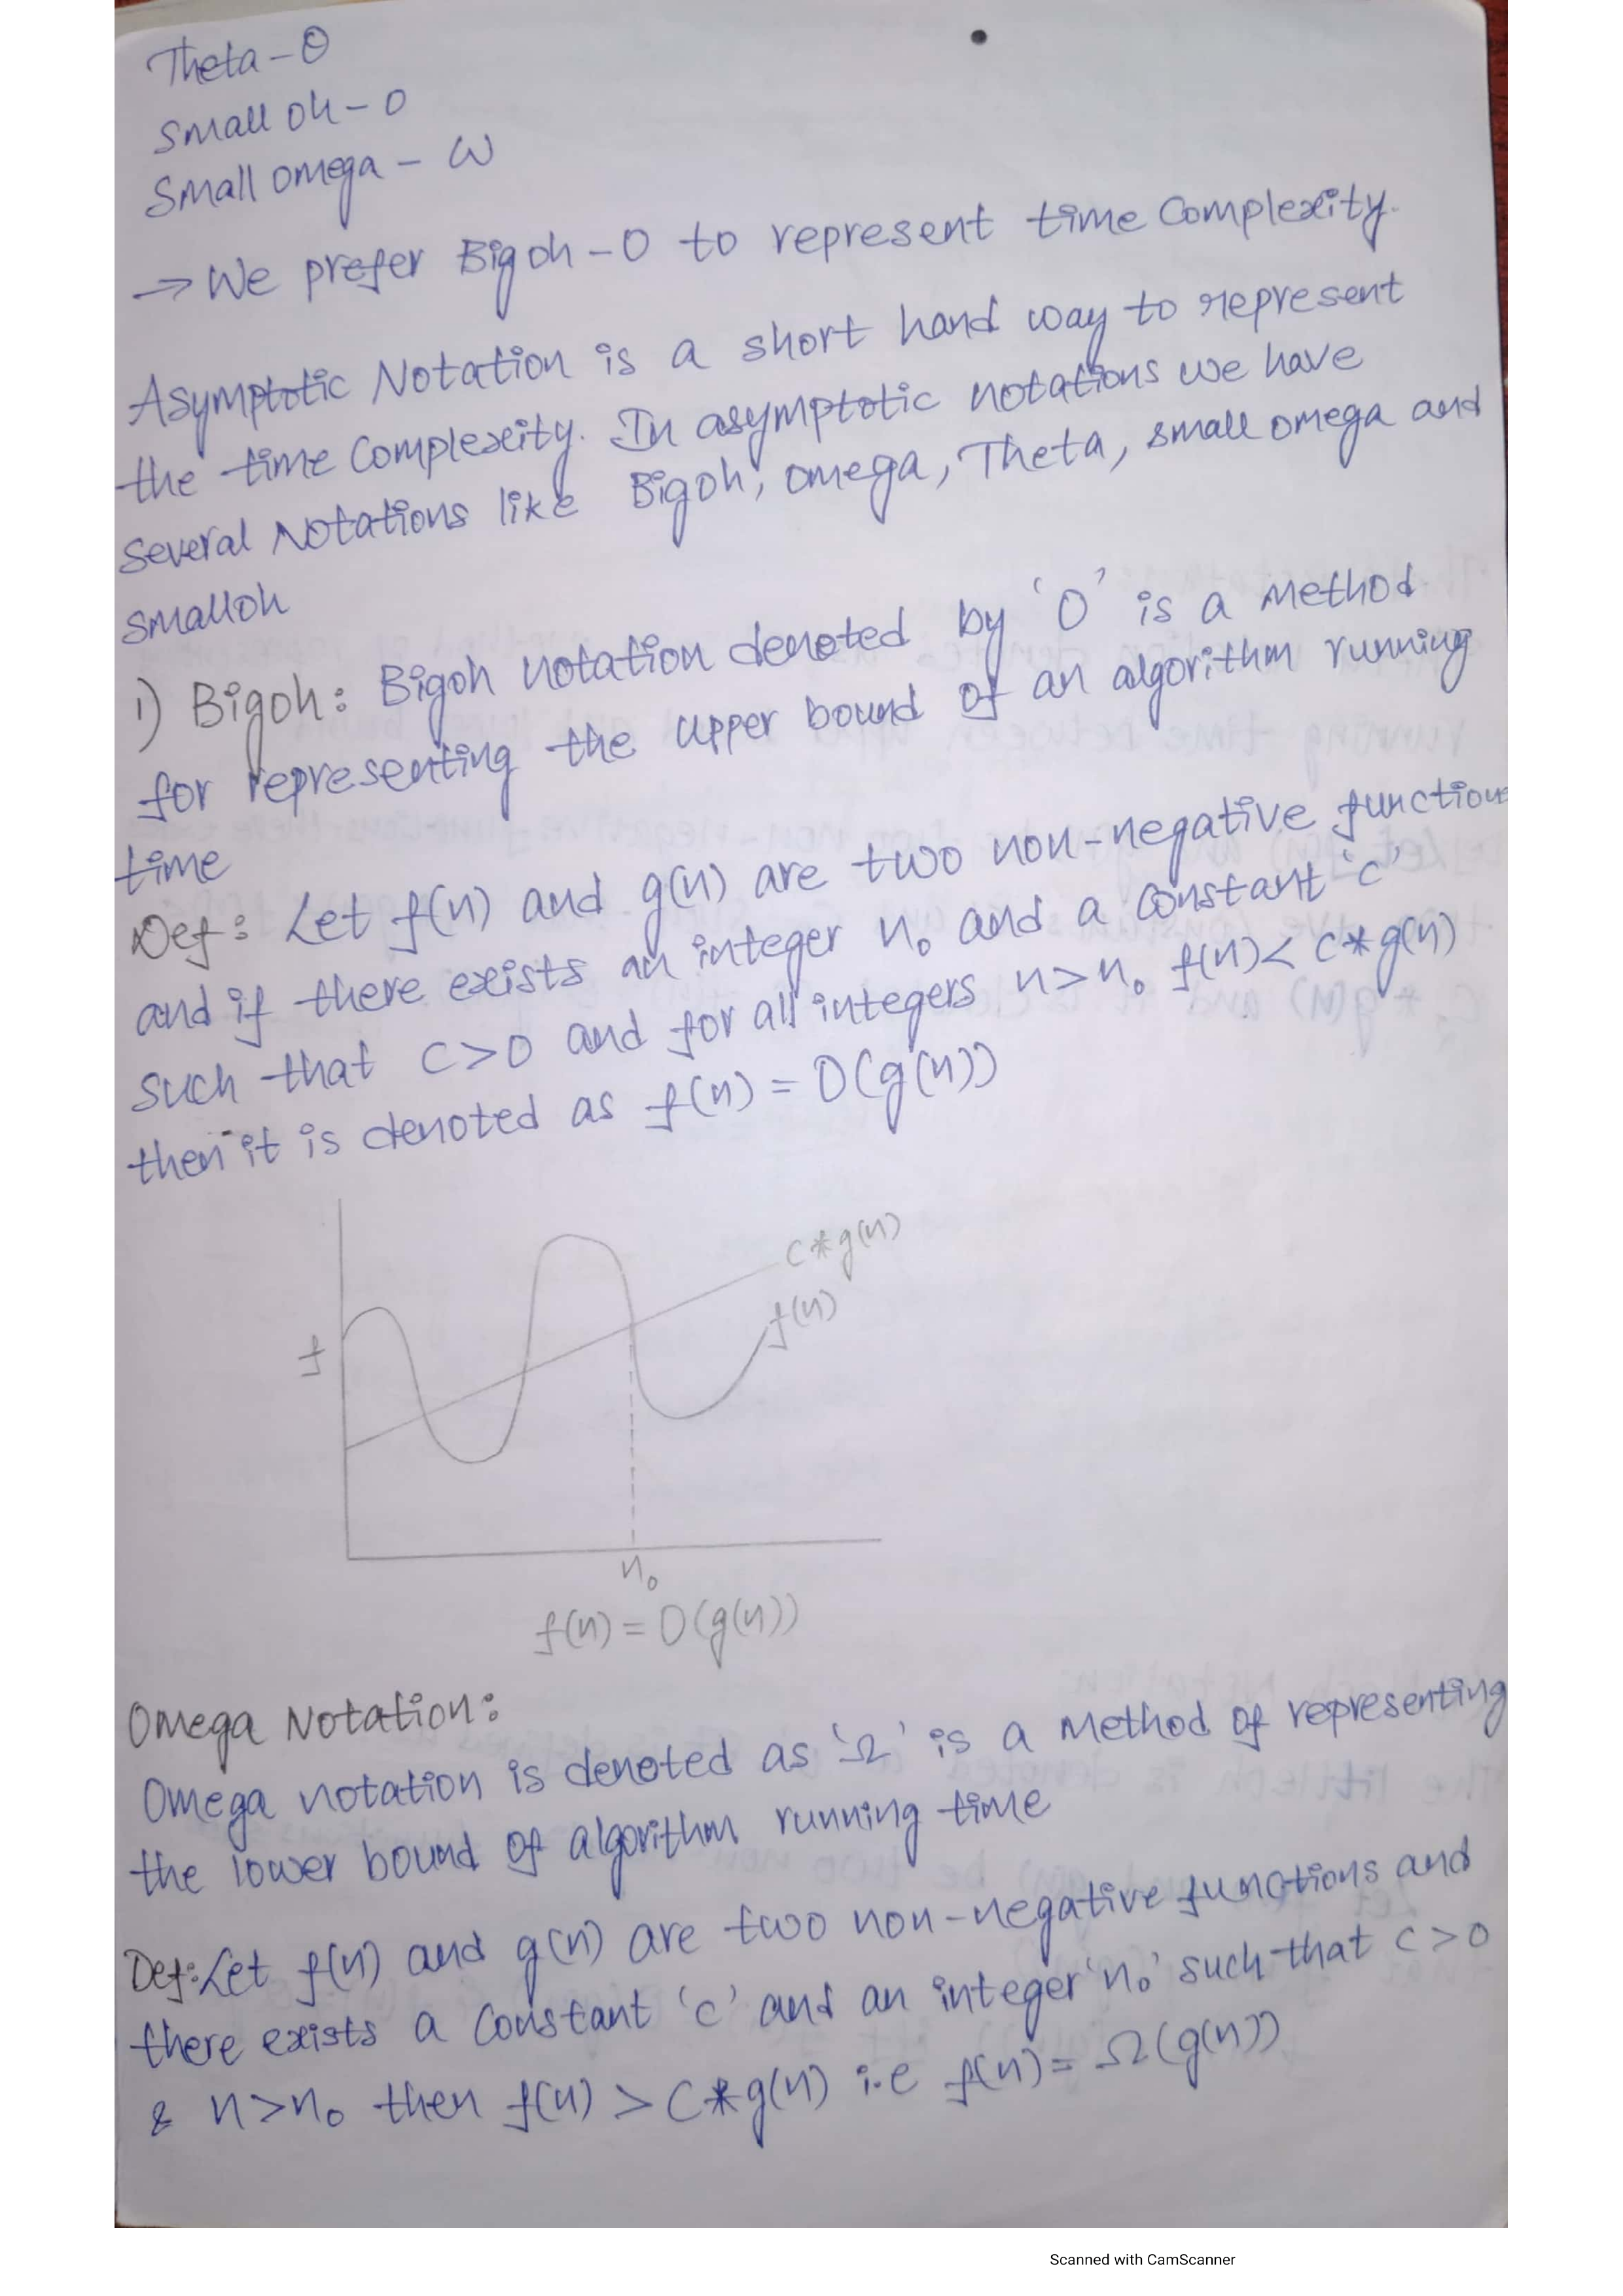 Theta - Θ
Small oh - o
Small omega - ω
→ We prefer Bigoh - O to represent time Complexity.
Asymptotic Notation is a short hand way to represent
the time Complexity. In asymptotic notations we have
Several Notations like Bigoh, omega, Theta, small omega and
smalloh
1) Bigoh: Bigoh notation denoted by 'O' is a method
for representing the upper bound of an algorithm running
time
Def: Let f(n) and g(n) are two non-negative function
and if there exists an integer n₀ and a constant 'c'
such that c>0 and for all integers n>n₀ f(n)< c*g(n)
then it is denoted as f(n) = O(g(n))
c*g(n)
f(n)
f
n₀
f(n) = O(g(n))
Omega Notation:
Omega notation is denoted as 'Ω' is a method of representing
the lower bound of algorithm running time
Def: Let f(n) and g(n) are two non-negative functions and
there exists a constant 'c' and an integer 'n₀' such that c>0
& n>n₀ then f(n) > c*g(n) i.e f(n) = Ω(g(n))
Scanned with CamScanner